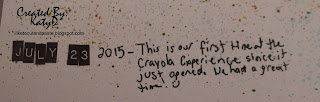 Created By:
Katy P.
JULY 23 2015 - This is our first time at the
Crayola Experience since it
just opened. We had a great
time. ☺